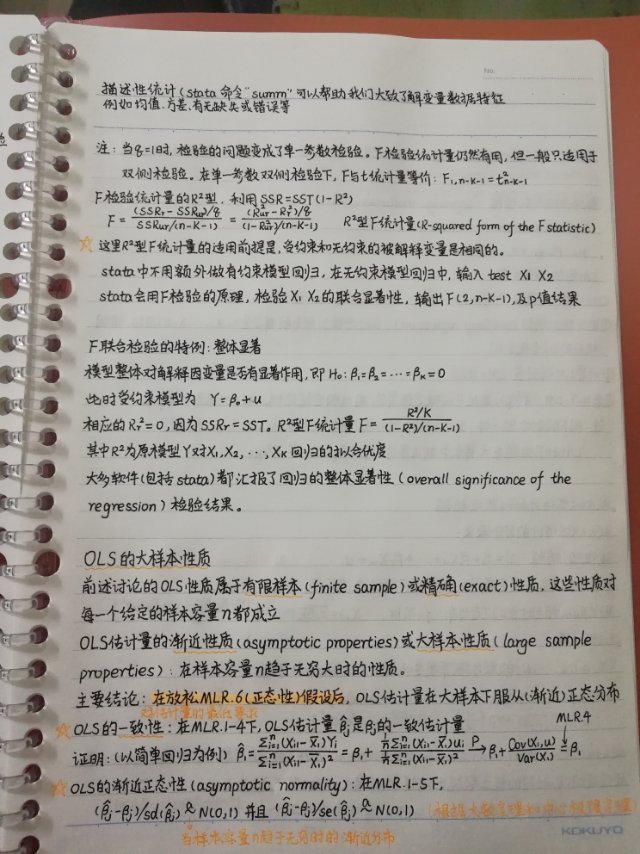 No.
描述性统计(stata 命令"summ"可以帮助我们大致了解变量数据特征
例如均值、方差、有无缺失或错误等
注:当q=1时,检验的问题变成了单一参数检验。F检验统计量仍然有用,但一般只适用于
双侧检验。在单一参数双侧检验下,F与t统计量等价:F₁,n-k-1=t²n-k-1
F检验统计量的R²型,利用SSR=SST(1-R²)
F=(SSRr-SSRur)/q / SSRur/(n-k-1) = (R²ur-Rr²)/q / (1-R²ur)/(n-k-1) R²型F统计量(R-squared form of the F statistic)
☆这里R²型F统计量的适用前提是,受约束和无约束的被解释变量是相同的。
stata中不用额外做有约束模型回归,在无约束模型回归中,输入 test X₁ X₂
stata会用F检验的原理,检验X₁ X₂的联合显著性,输出F(2,n-k-1),及p值结果
F联合检验的特例:整体显著
模型整体对解释因变量是否有显著作用,即 H₀:β₁=β₂=…=βk=0
此时受约束模型为 Y=β₀+u
相应的Rr²=0,因为SSRr=SST。R²型F统计量 F= R²/k / (1-R²)/(n-k-1)
其中R²为原模型Y对X₁,X₂,…,Xk回归的拟合优度
大多软件(包括stata)都汇报了回归的整体显著性(overall significance of the
regression)检验结果。
OLS的大样本性质
前述讨论的OLS性质属于有限样本(finite sample)或精确(exact)性质,这些性质对
每一个给定的样本容量n都成立
OLS估计量的渐近性质(asymptotic properties)或大样本性质(large sample
properties):在样本容量n趋于无穷大时的性质。
主要结论:在放松MLR.6(正态性)假设后,OLS估计量在大样本下服从(渐近)正态分布
对估计量的最低要求
☆OLS的一致性:在MLR.1-4下,OLS估计量β̂j是βj的一致估计量
MLR.4
证明:(以简单回归为例) β̂₁= Σⁿi=1(Xi1-X̄1)Yi / Σⁿi=1(Xi1-X̄1)² = β₁+ 1/n Σⁿi=1(Xi1-X̄1)ui / 1/n Σⁿi=1(Xi1-X̄1)² →ᵖ β₁+ Cov(X₁,u)/Var(X₁) = β₁
☆OLS的渐近正态性(asymptotic normality):在MLR.1-5下,
(β̂j-βj)/sd(β̂j) ᵃ~ N(0,1) 并且 (β̂j-βj)/se(β̂j) ᵃ~ N(0,1) (根据大数定理和中心极限定理)
当样本容量n趋于无穷时的渐近分布
KOKUYO